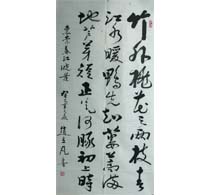 竹外桃花三兩枝春
江水暖鴨先知蔞蒿滿
地芦芽短正是河豚初上時
惠崇春江晚景